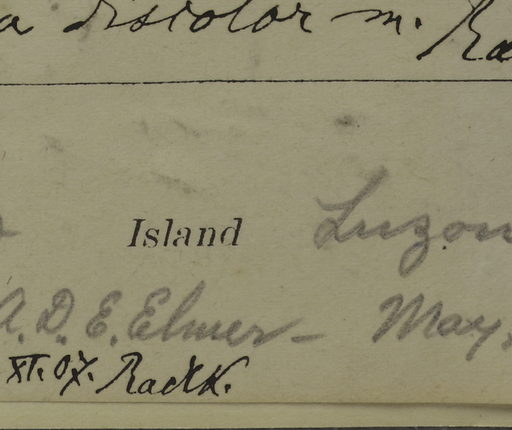 a discolor m. Ra
Island Luzon
A. D. E. Elmer - May.
XI. 07. Radlk.